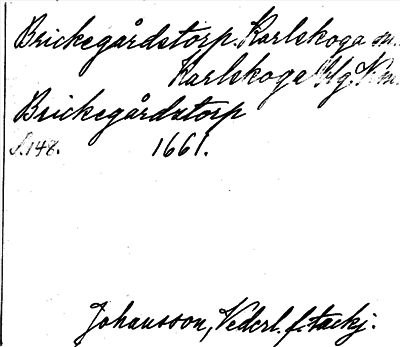 Brickegårdstorp. Karlskoga sn.
Karlskoga hg. Vm.
Brickegårdstorp
s. 148. 1661.
Johansson, Vederl. f. tackj.